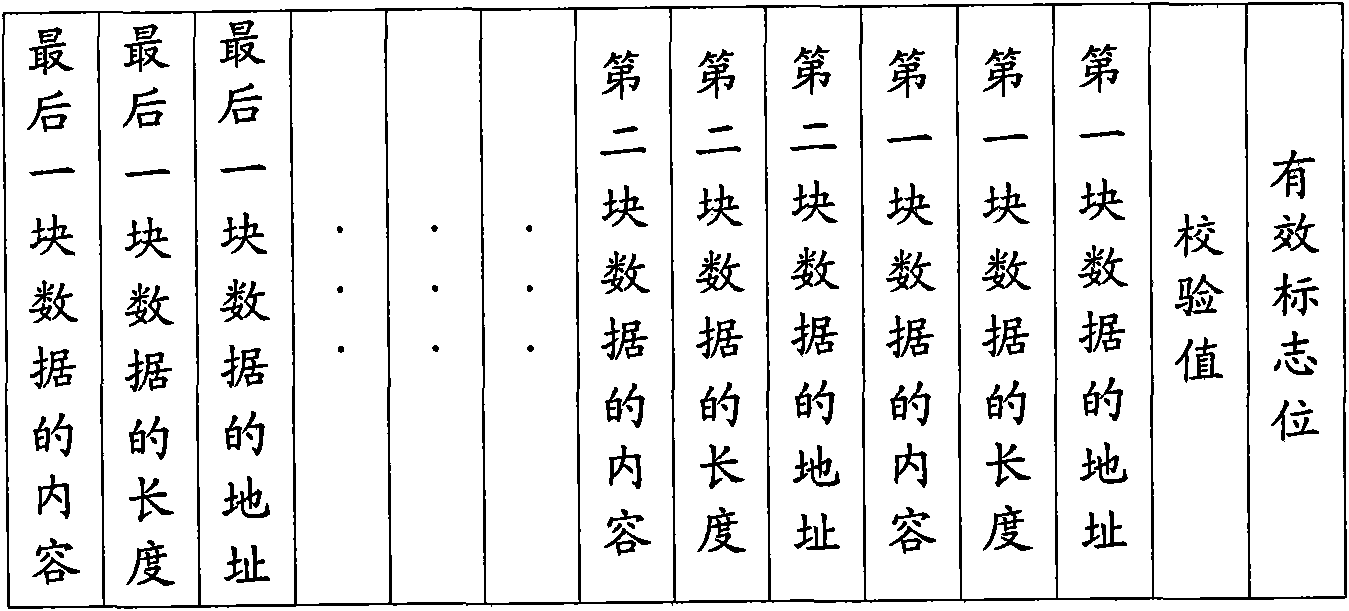 有效标志位
校验值
第一块数据的地址
第一块数据的长度
第一块数据的内容
第二块数据的地址
第二块数据的长度
第二块数据的内容
···
···
···
最后一块数据的地址
最后一块数据的长度
最后一块数据的内容